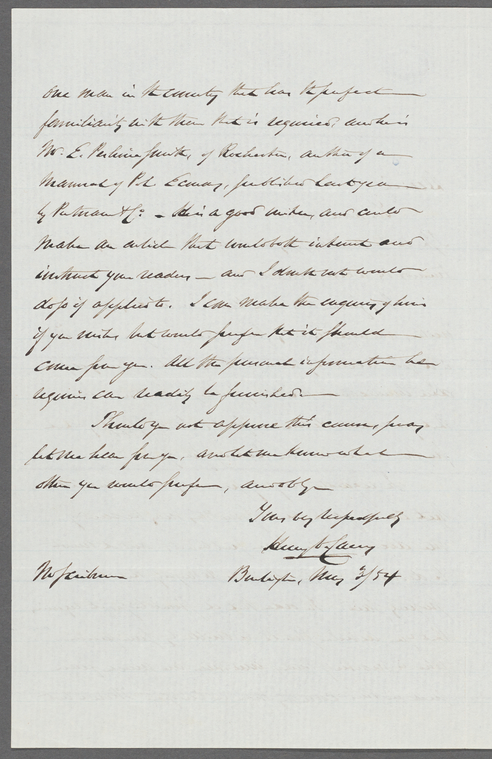 one man in the country that has the perfect
familiarity with them that is required, and he is
Mr. E. Peshine Smith, of Rochester, author of a
Manual of Pol. Economy, published last year
by Putnam & Co. — He is a good writer, and could
make an article that would both interest and
instruct your readers — and I doubt not would
do so if applied to. I can make the enquiry of him
if you wish, but would prefer that it should
come from you. All the personal information he
requires can readily be furnished.
Should you not approve this course, pray
let me hear from you, and let me know what
other you would prefer, and oblige
Yours very respectfully
Henry C. Carey
Burlington, May 3/54